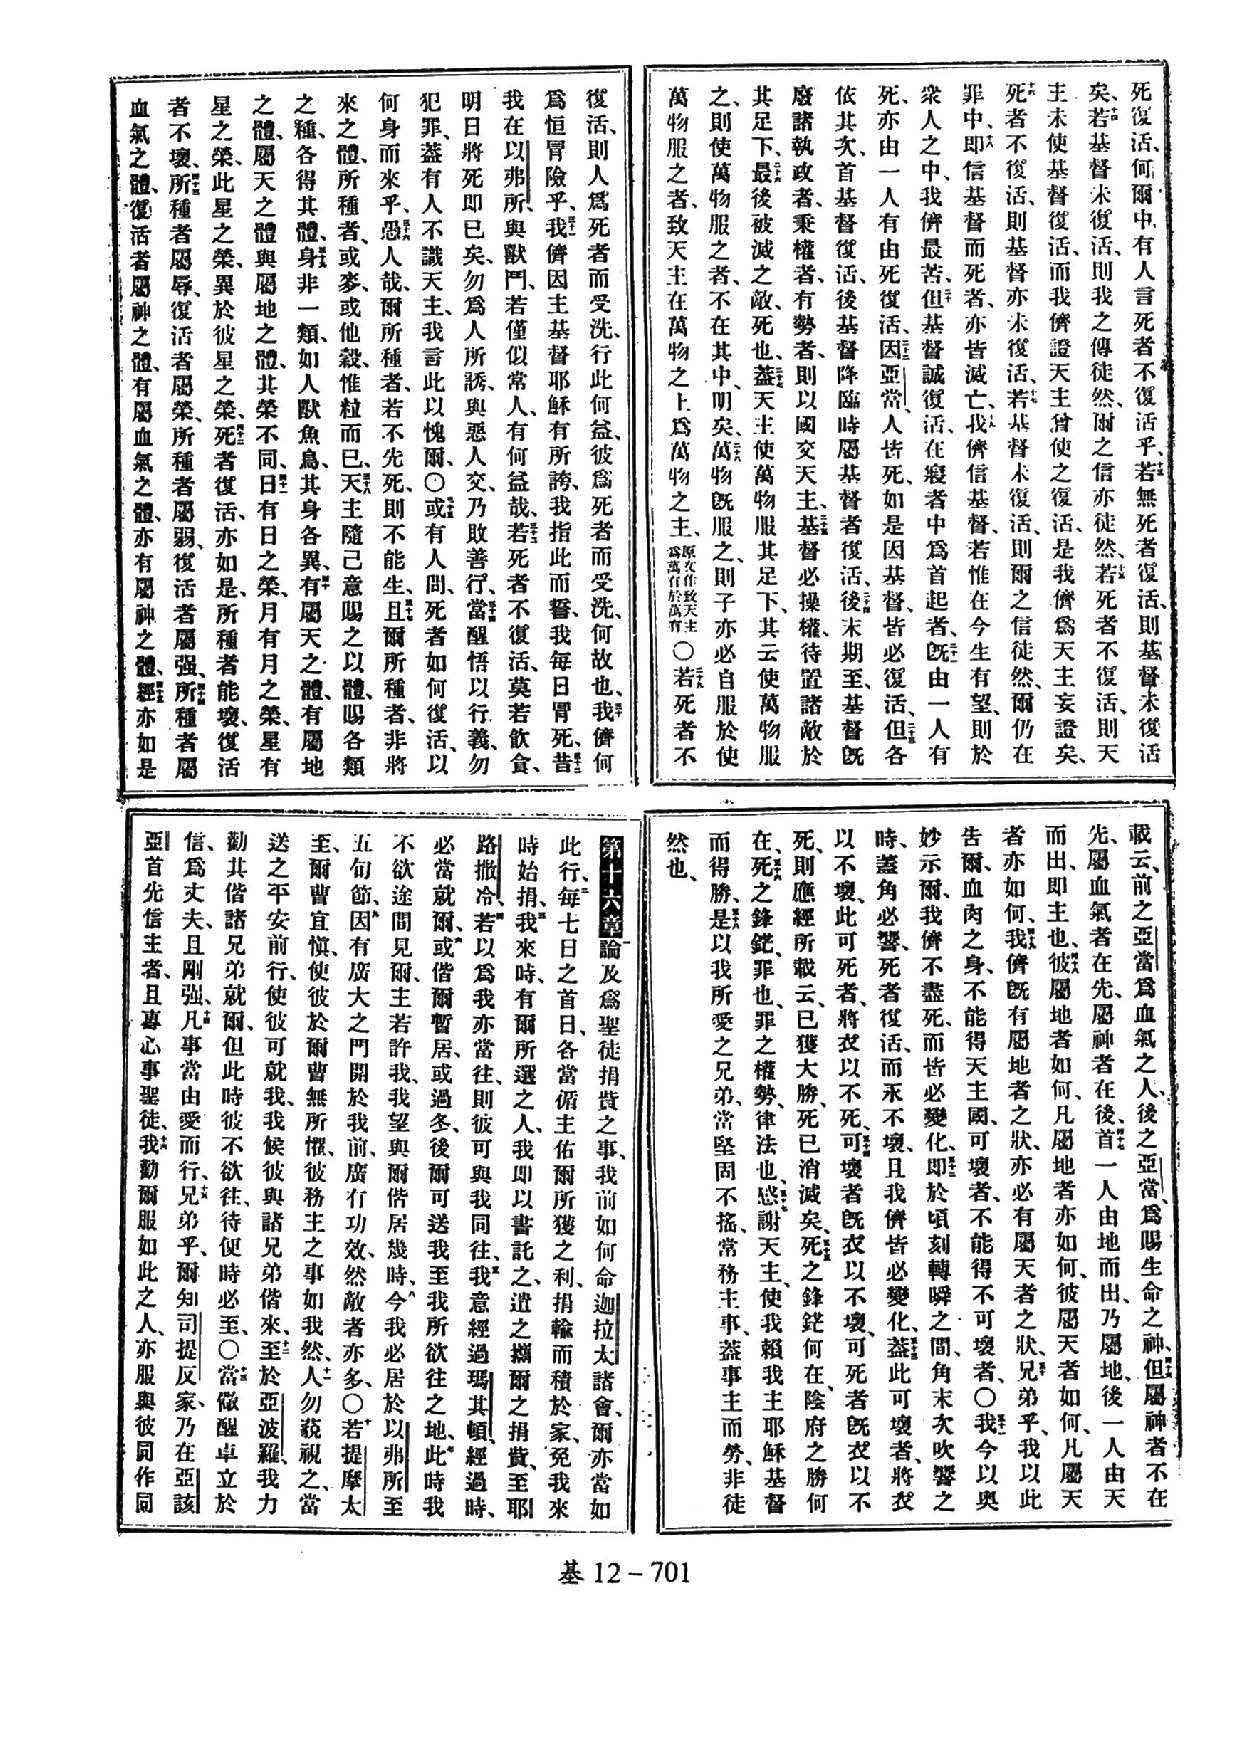 死復活、何爾中有人言死者不復活乎、若無死者復活、則基督未復活
矣、若基督未復活、則我之傳徒然、爾之信亦徒然、若死者不復活、則天
主未使基督復活、而我儕證天主曾使之復活、是我儕爲天主妄證矣、
死者不復活、則基督亦未復活、若基督未復活、則爾之信徒然、爾仍在
罪中、即信基督而死者、亦皆滅亡、我儕信基督、若惟在今生有望、則於
衆人之中、我儕最苦、但基督誠復活、在寢者中爲首起者、旣由一人有
死、亦由一人有由死復活、因亞當、人皆死、如是因基督、皆必復活、但各
依其次、首基督復活、後基督降臨時屬基督者復活、後末期至、基督旣
廢諸執政者、秉權者、有勢者、則以國交天主、基督必操權、待置諸敵於
其足下、最後被滅之敵、死也、蓋天主使萬物服其足下、其云使萬物服
之、則使萬物服之者、不在其中、明矣、萬物旣服之、則子亦必自服於使
萬物服之者、致天主在萬物之上爲萬物之主、原文作致天主爲萬有於萬有〇若死者不
復活、則人爲死者而受洗、行此何益、彼爲死者而受洗、何故也、我儕何
爲恒冒險乎、我儕因主基督耶穌有所誇、我指此而誓、我每日冒死、昔
我在以弗所、與獸鬥、若僅似常人、有何益哉、若死者不復活、莫若飲食、
明日將死即已矣、勿爲人所誘、與惡人交、乃敗善行、當醒悟以行義、勿
犯罪、蓋有人不識天主、我言此以愧爾、〇或有人問、死者如何復活、以
何身而來乎、愚人哉、爾所種者、若不先死、則不能生、且爾所種者、非將
來之體、所種者、或麥、或他穀、惟粒而已、天主隨己意賜之以體、賜各類
之種、各得其體、身非一類、如人獸魚鳥、其身各異、有屬天之體、有屬地
之體、屬天之體與屬地之體、其榮不同、日有日之榮、月有月之榮、星有
星之榮、此星之榮、異於彼星之榮、死者復活、亦如是、所種者能壞、復活
者不壞、所種者屬辱、復活者屬榮、所種者屬弱、復活者屬强、所種者屬
血氣之體、復活者屬神之體、有屬血氣之體、亦有屬神之體、經亦如是
載云、前之亞當爲血氣之人、後之亞當、爲賜生命之神、但屬神者不在
先、屬血氣者在先、屬神者在後、首一人由地而出、乃屬地、後一人由天
而出、即主也、彼屬地者如何、凡屬地者亦如何、彼屬天者如何、凡屬天
者亦如何、我儕旣有屬地者之狀、亦必有屬天者之狀、兄弟乎、我以此
告爾、血肉之身、不能得天主國、可壞者、不能得不可壞者、〇我今以奧
妙示爾、我儕不盡死、而皆必變化、即於頃刻轉瞬之間、角末次吹響之
時、蓋角必響、死者復活、而永不壞、且我儕皆必變化、蓋此可壞者、將衣
以不壞、此可死者、將衣以不死、可壞者旣衣以不壞、可死者旣衣以不
死、則應經所載云、已獲大勝、死已消滅矣、死之鋒鋩何在、陰府之勝何
在、死之鋒鋩、罪也、罪之權勢、律法也、感謝天主、使我賴我主耶穌基督
而得勝、是以我所愛之兄弟、當堅固不搖、常務主事、蓋事主而勞、非徒
然也、
第十六章論及爲聖徒捐貲之事、我前如何命迦拉太諸會、爾亦當如
此行、每七日之首日、各當循主佑爾所獲之利、捐輸而積於家、免我來
時始捐、我來時、有爾所選之人、我即以書託之、遣之攜爾之捐貲、至耶
路撒冷、若以爲我亦當往、則彼可與我同往、我意經過瑪其頓、經過時、
必當就爾、或偕爾暫居、或過冬、後爾可送我至我所欲往之地、此時我
不欲途間見爾、主若許我、我望與爾偕居幾時、今我必居於以弗所、至
五旬節、因有廣大之門開於我前、廣有功效、然敵者亦多、〇若提摩太
至、爾曹宜愼、使彼於爾曹無所懼、彼務主之事如我然、人勿藐視之、當
送之平安前行、使彼可就我、我候彼與諸兄弟偕來、至於亞波羅、我力
勸其偕諸兄弟就爾、但此時彼不欲往、待便時必至、〇當儆醒卓立於
信、爲丈夫、且剛强、凡事當由愛而行、兄弟乎、爾知司提反家、乃在亞該
亞首先信主者、且專心事聖徒、我勸爾服如此之人、亦服與彼同作同
基 12-701